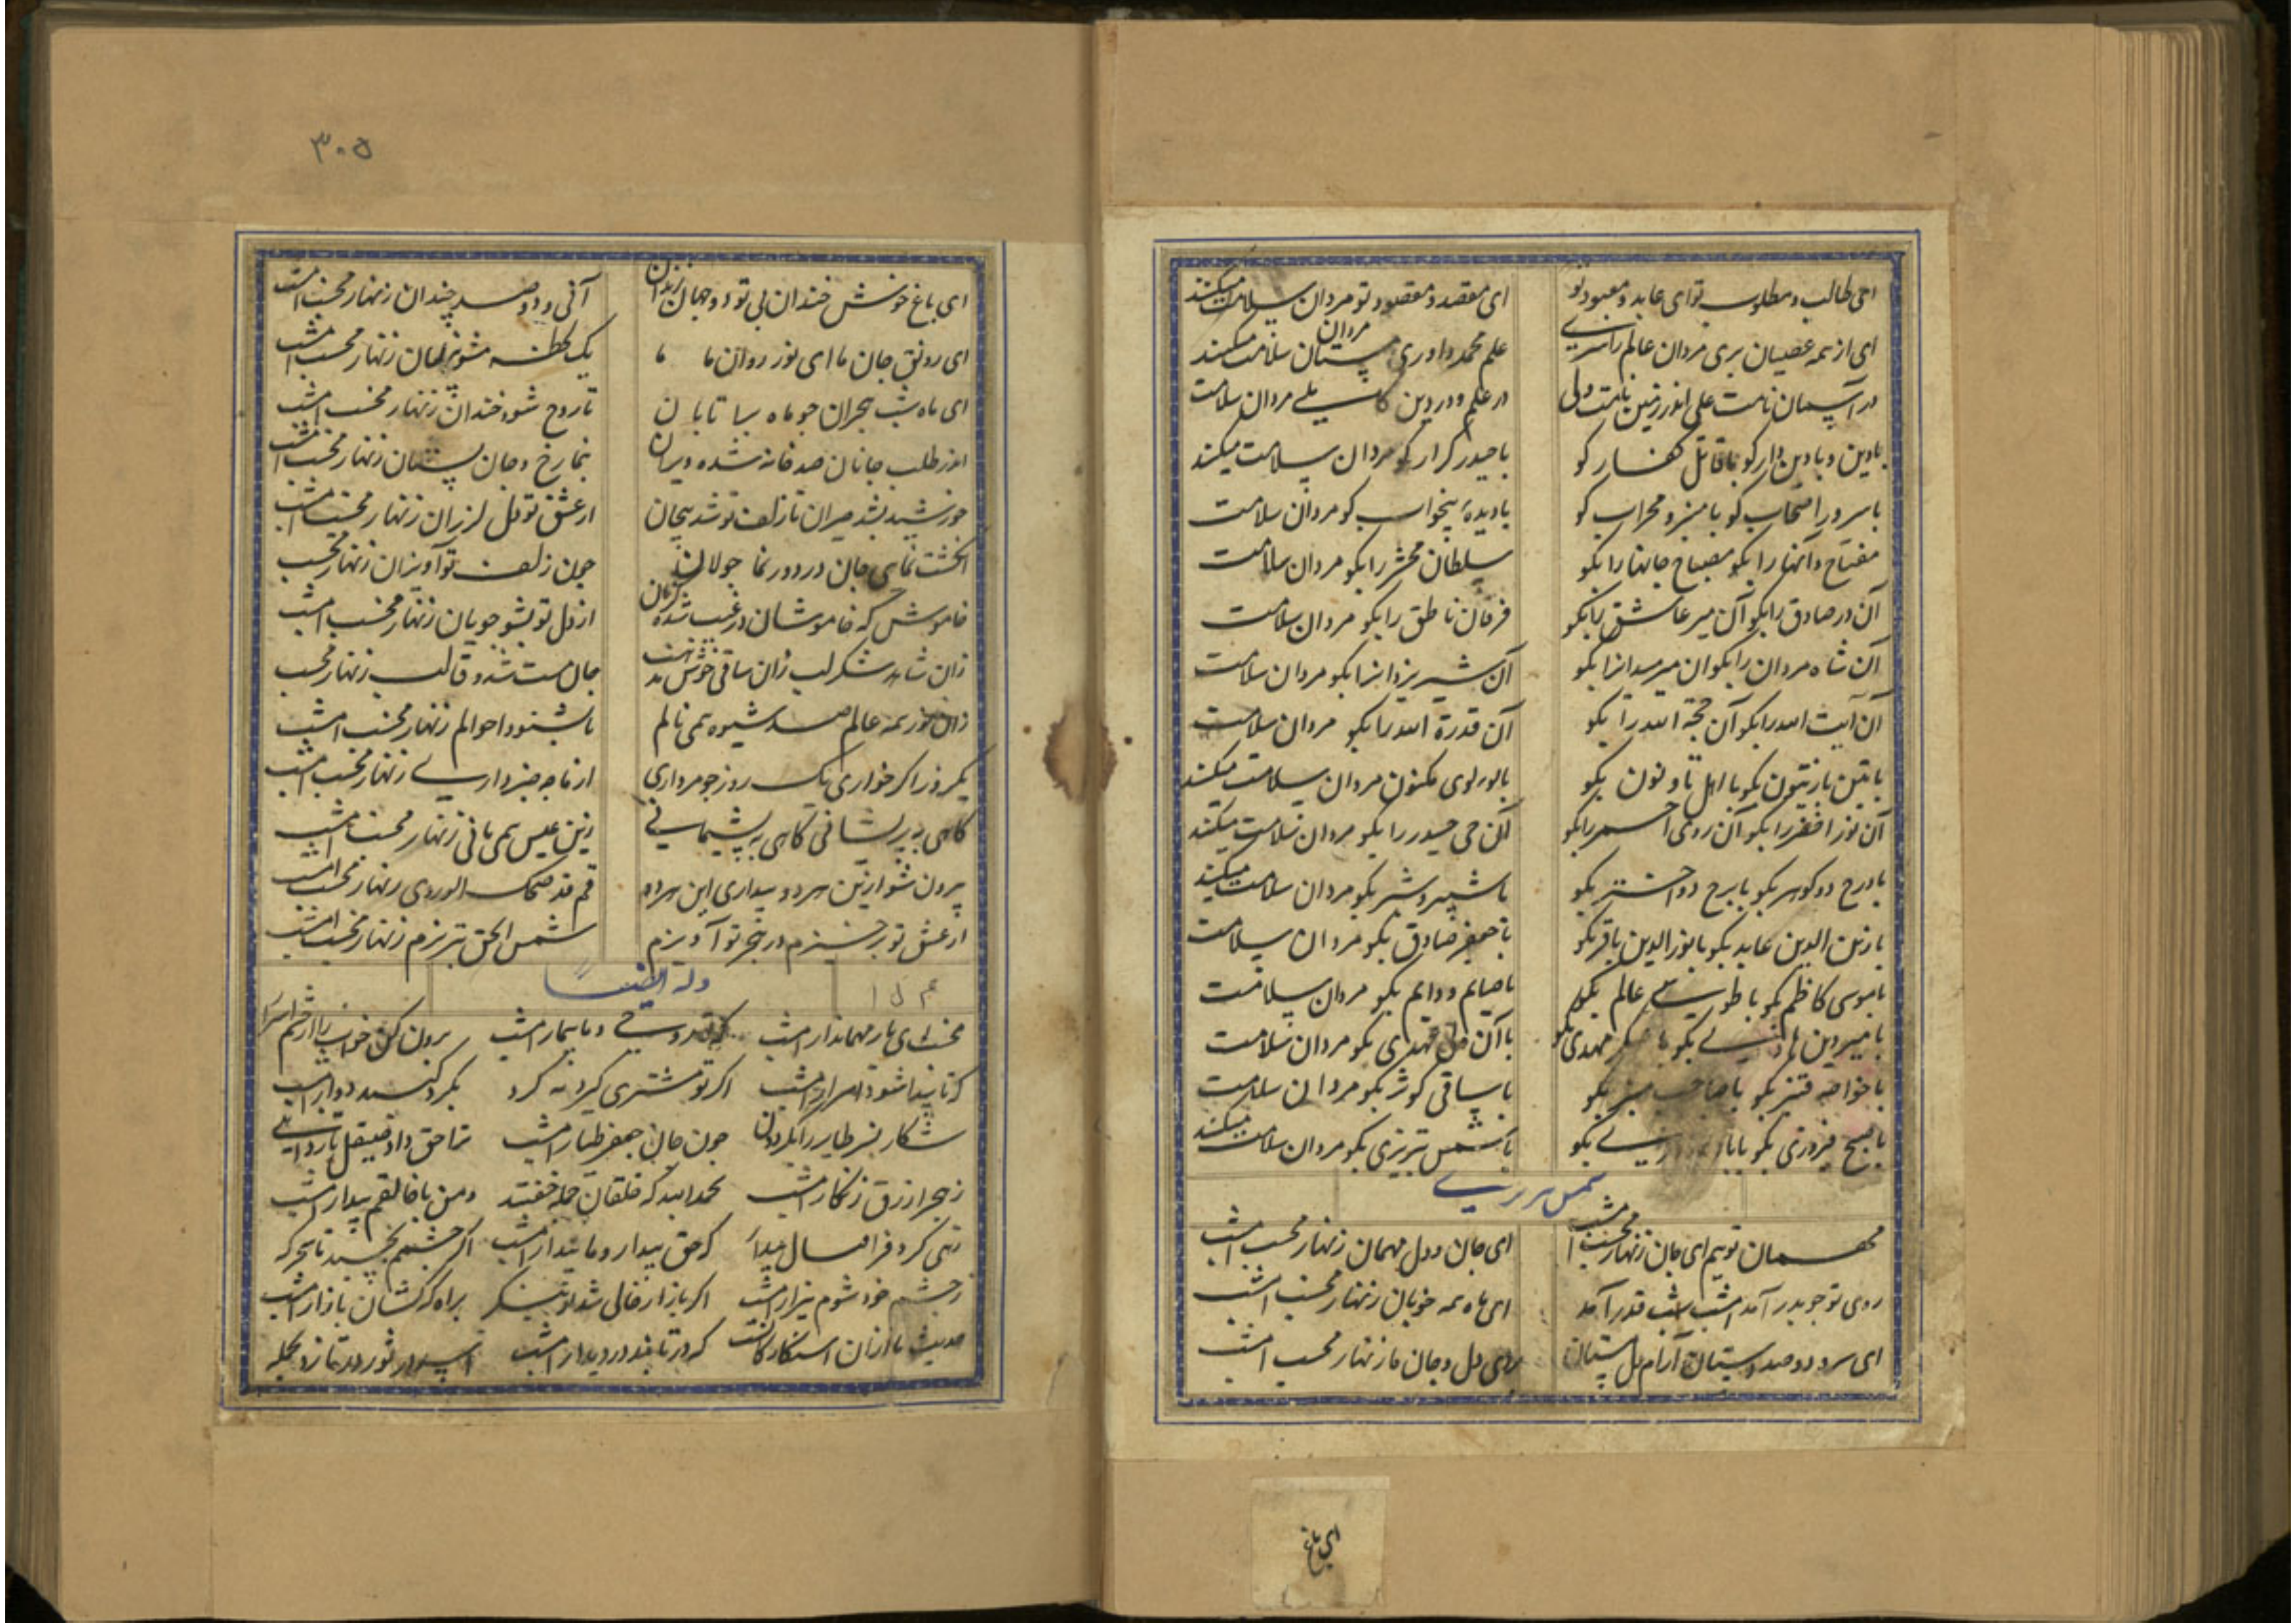 ای طالب و مطلوب تو ای عابد و معبود تو ای مقصد و مقصود تو مردان سلامت میکنند
ای از همه عصیان بری مردان عالم را سری علم محمد داوری مردان مستان سلامت میکنند
در آسمان نامت علی اندر زمین نامت ولی در علم و در دین کاملی مردان سلامت
بادین و بادین دار کو با قاتل کفار کو با حیدر کرار کو مردان سلامت میکنند
با سرور اصحاب کو با منبر و محراب کو با دیدهٔ بیخواب کو مردان سلامت
مفتاح را بکو مصباح جانها را بکو سلطان محشر را بکو مردان سلامت
آن در صادق را بکو آن میر عاشق را بکو فرقان ناطق را بکو مردان سلامت
آن شاه مردان را بکو آن میر میدانرا بکو آن شیر یزدانرا بکو مردان سلامت
آن آیت الله را بکو آن حجة الله را بکو آن قدرة الله را بکو مردان سلامت
با تین با زیتون بکو با اهل تا و نون بکو با لولوی مکنون مردان سلامت میکنند
آن نور اخضر را بکو آن روی احمر را بکو آن حی حیدر را بکو مردان سلامت میکنند
با درج دو کوهر بکو با برج دو اختر بکو با شبیر و شبر بکو مردان سلامت میکنند
با زین الدین عابد بکو با نور الدین باقر بکو با جعفر صادق بکو مردان سلامت
با موسی کاظم بکو با طوسی عالم بکو با صایم و دایم بکو مردان سلامت
با میر دین بکو با عسکر مهدی بکو با آن مهدی بکو مردان سلامت
با خواجه قنبر بکو با صاحب منبر بکو با ساقی کوثر بکو مردان سلامت
با فیروزی بکو بکو با شمس تبریزی بکو مردان سلامت میکنند
شمس تبریزی
مهمان توییم ای جان زنهار مخسب امشب ای جان و دل مهمان زنهار مخسب امشب
روی تو چو بدر آمد امشب شب قدر آمد ای ماه همه خوبان زنهار مخسب امشب
ای سرو دو صد بستان آرام دل مستان بردی دل و جان ما زنهار مخسب امشب
ای باغ
۳۰۵
ای باغ خوش خندان بی تو دو جهان زندان آنی و دو صد چندان زنهار مخسب امشب
ای رونق جان ما ای نور روان ما یک لحظه مشو زنهار مخسب امشب
ای ماه شب هجران چو ماه بیا تابان تا روح شود خندان زنهار مخسب امشب
اندر طلب جانان صد خانه شده ویران بنما رخ و جان بستان زنهار مخسب امشب
خورشید بشد حیران تا زلف تو شد پیچان از عشق تو دل لرزان زنهار مخسب امشب
انکشت نمای جان در دور نما جولان چون زلف تو آویزان زنهار مخسب
خاموش که خاموشان در غیب شده از دل تو بشو جویان زنهار مخسب امشب
زان شاهد شکر لب زان ساقی خوش مذهب جان مست شد و قالب زنهار مخسب
زان نور همه عالم صد شیوه همی نالم تا بشنود احوالم زنهار مخسب امشب
یکروز اکر خواری یک روز چو مرداری از ما چه خبر داری زنهار مخسب امشب
کاهی به پریشانی کاهی به پشیمانی زین عیش همی مانی زنهار مخسب امشب
بیرون شو ازین هر دو بیداری این هر دو قم قد ضحک الوردی زنهار مخسب امشب
از عشق تو برخیزم در تو آویزم شمس الحق تبریزم زنهار مخسب امشب
وله ایضاً
مخسب ای یار مهماندار امشب که تو روحی و ما بیمار امشب برون کن خواب را از چشم اسرار
که تا پیدا شود اسرار امشب اکر تو مشتری کرد مه کرد بکرد کنبد دوار امشب
شکار نسر طایر را بکردون چون جان جعفر طیار امشب ترا حق داد صیقل تا زدایی
ز هجر ازرق زنکار امشب بحمدالله که خلقان جمله خفتند و من با خالقم بیدار امشب
زهی کر و فر اقبال بیدار که حق بیدار و ما بیدار امشب اکر چشمم بخسبد تا سحر که
ز چشم خود شوم بیزار امشب اکر بازار خالی شد تو بنکر براه کهکشان بازار امشب
که در دیدار امشب اسد بر ثور بر تازد بجمله